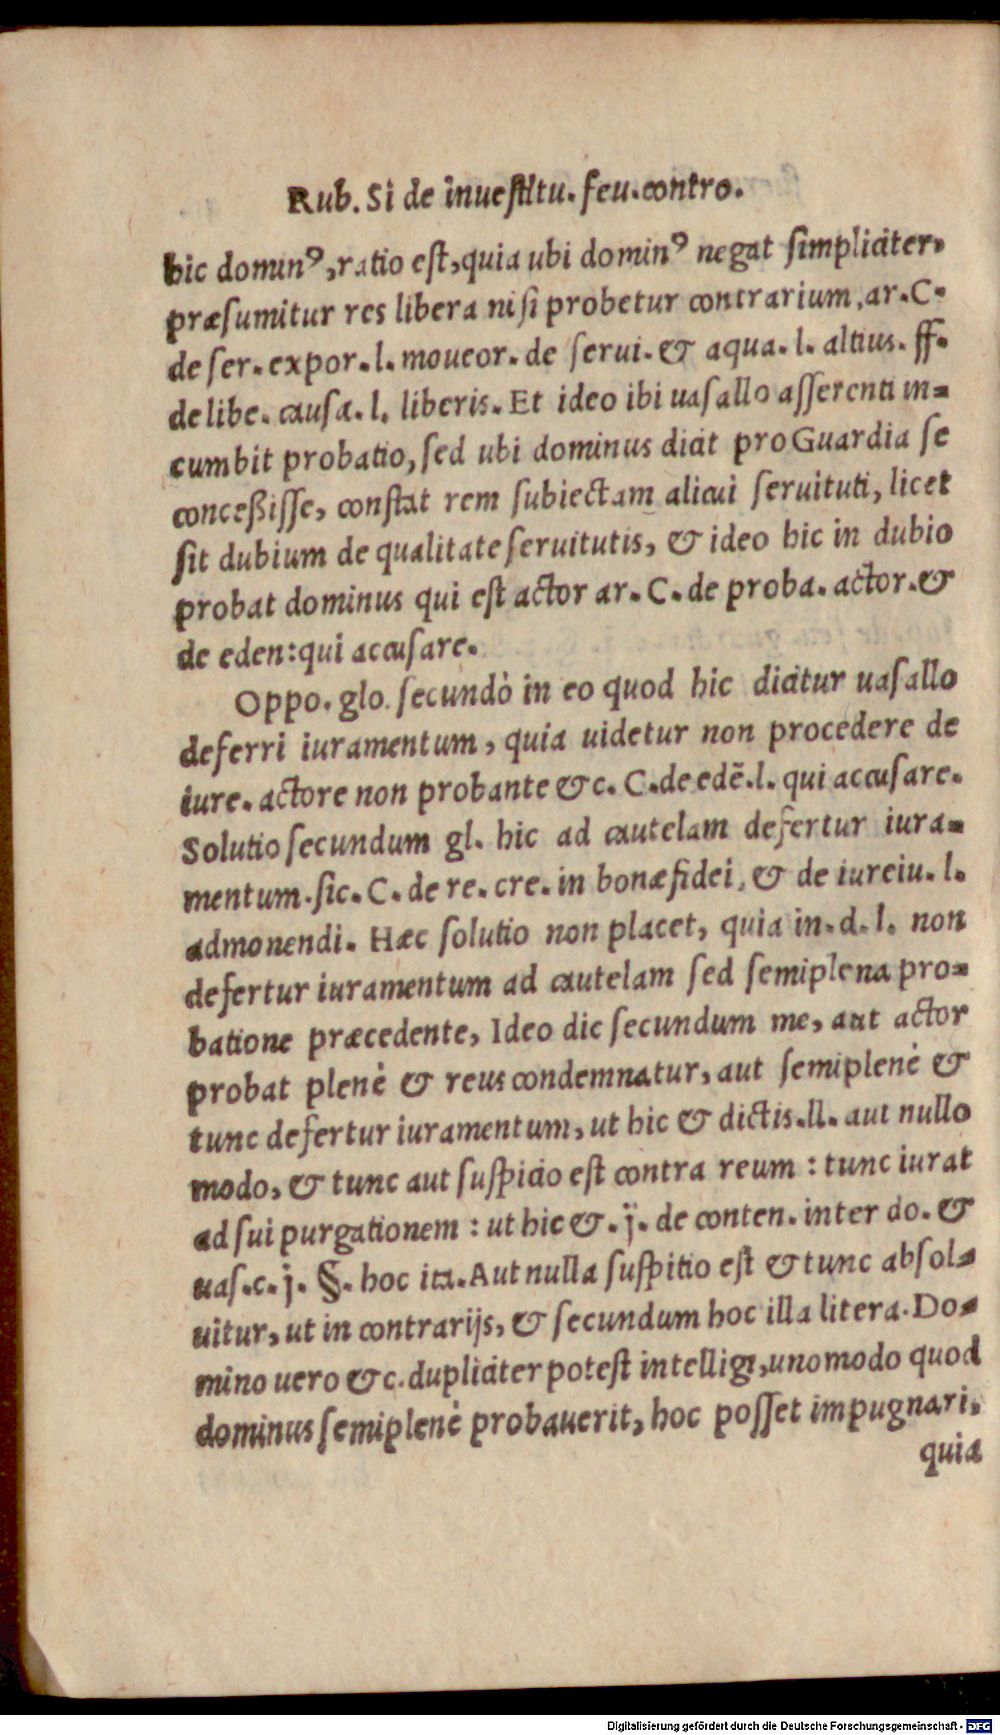 Rub. Si de inuestitu. feu. contro.
hic dominꝰ, ratio est, quia ubi dominꝰ negat simpliciter,
præsumitur res libera nisi probetur contrarium, ar. C.
de ser. expor. l. moueor. de serui. & aqua. l. altius. ff.
de libe. causa. l. liberis. Et ideo ibi uasallo asserenti in-
cumbit probatio, sed ubi dominus dicit pro Guardia se
conceßisse, constat rem subiectam alicui seruituti, licet
sit dubium de qualitate seruitutis, & ideo hic in dubio
probat dominus qui est actor ar. C. de proba. actor. &
de eden: qui accusare.
Oppo. glo. secundò in eo quod hic dicitur uasallo
deferri iuramentum, quia uidetur non procedere de
iure. actore non probante &c. C. de edē. l. qui accusare.
Solutio secundum gl. hic ad cautelam defertur iura-
mentum. sic. C. de re. cre. in bonæ fidei, & de iureiu. l.
admonendi. Hæc solutio non placet, quia in. d. l. non
defertur iuramentum ad cautelam sed semiplena pro-
batione præcedente, Ideo dic secundum me, aut actor
probat plenè & reus condemnatur, aut semiplenè &
tunc defertur iuramentum, ut hic & dictis. ll. aut nullo
modo, & tunc aut suspicio est contra reum : tunc iurat
ad sui purgationem : ut hic &. ij. de conten. inter do. &
uas. c. j. §. hoc ita. Aut nulla suspitio est & tunc absol-
uitur, ut in contrarijs, & secundum hoc illa litera. Do-
mino uero &c. dupliciter potest intelligi, uno modo quod
dominus semiplenè probauerit, hoc posset impugnari,
quia
Digitalisierung gefördert durch die Deutsche Forschungsgemeinschaft - DFG